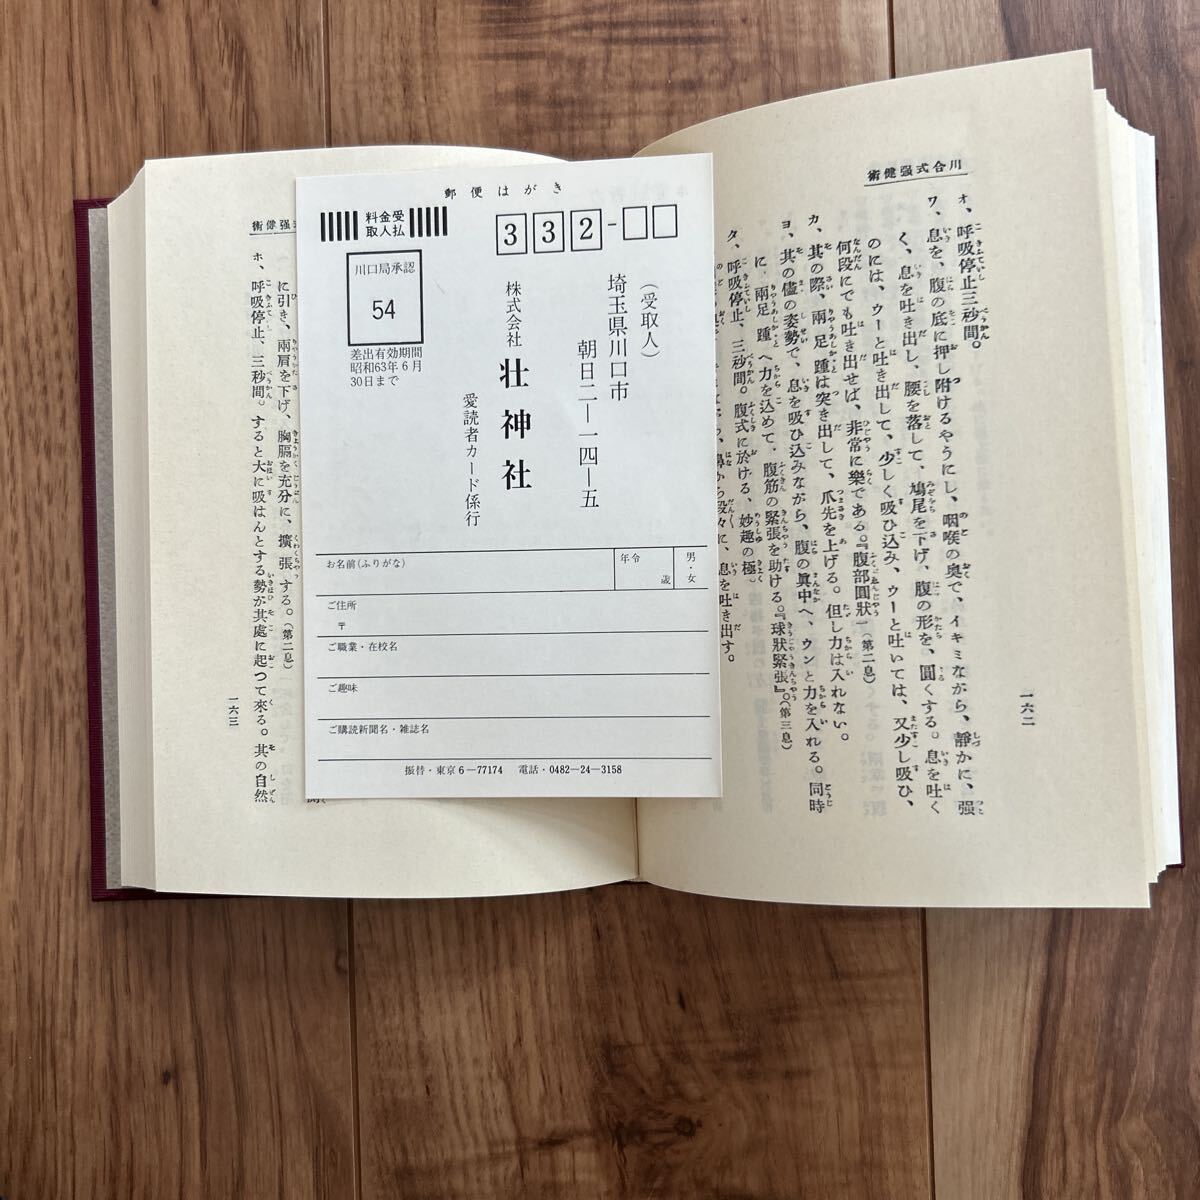 川合式强健術
オ、呼吸停止三秒間。
ワ、息を、腹の底に押し附けるやうにし、咽喉の奥で、イキミながら、靜かに、强
く、息を吐き出し、腰を落して、鳩尾を下げ、腹の形を、圓くする。息を吐く
のには、ウーと吐き出して、少しく吸ひ込み、ウーと吐いては、又少し吸ひ、
何段にでも吐き出せば、非常に樂である。『腹部圓狀』(第二息)
カ、其の際、兩足踵は突き出して、爪先を上げる。但し力は入れない。
ヨ、其の儘の姿勢で、息を吸ひ込みながら、腹の眞中へ、ウンと力を入れる。同時
に、兩足踵へ力を込めて、腹筋の緊張を助ける。『球狀緊張』。(第三息)
タ、呼吸停止、三秒間。腹式に於ける、妙趣の極。
鼻から段々に、息を吐き出す。
一六二
强健術
に引き、兩肩を下げ、胸膈を充分に、擴張する。(第二息)
ホ、呼吸停止、三秒間。すると大に吸はんとする勢が其處に起つて來る。其の自然
一六三
郵便はがき
料金受
取人払
332-
川口局承認
54
差出有効期間
昭和63年6月
30日まで
(受取人)
埼玉県川口市
朝日二―一四―五
株式会社 壮神社
愛読者カード係行
お名前(ふりがな)
年令
歳
男・女
ご住所
〒
ご職業・在校名
ご趣味
ご購読新聞名・雑誌名
振替・東京6―77174 電話・0482―24―3158